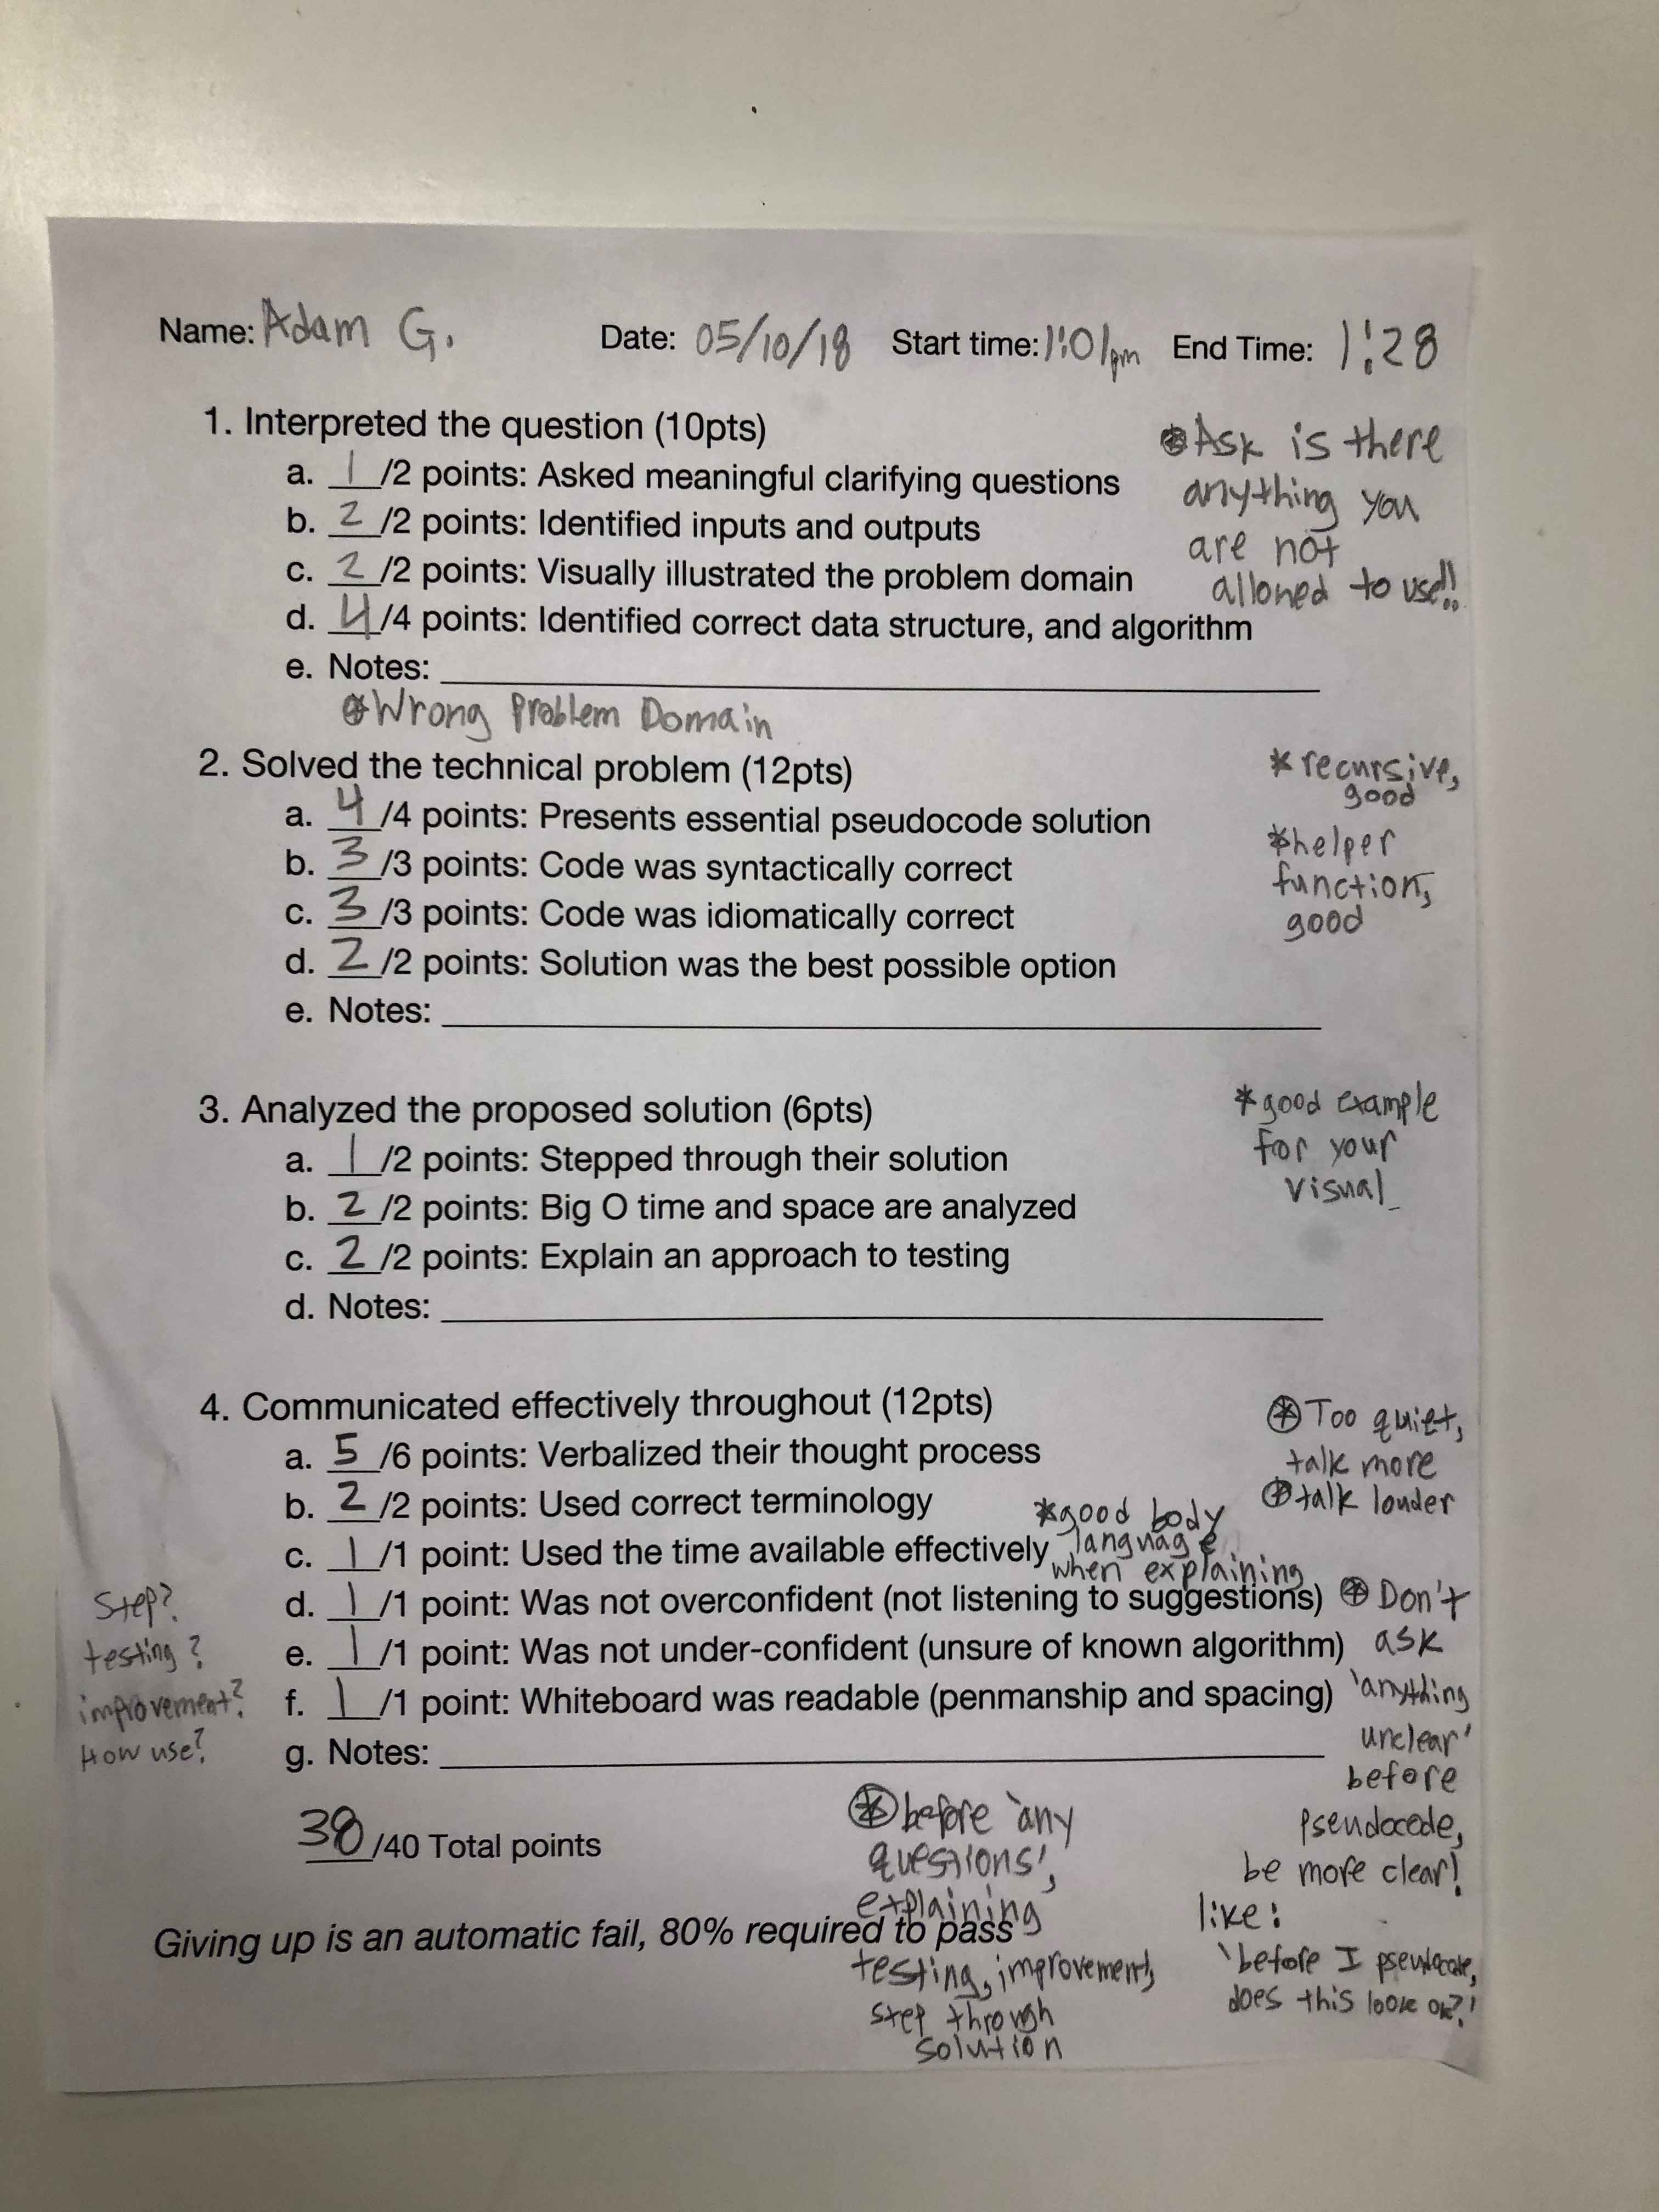 Name: Adam G. Date: 05/10/18 Start time: 1:01pm End Time: 1:28
1. Interpreted the question (10pts)
a. 1/2 points: Asked meaningful clarifying questions
b. 2/2 points: Identified inputs and outputs
c. 2/2 points: Visually illustrated the problem domain
d. 4/4 points: Identified correct data structure, and algorithm
e. Notes:
*Wrong Problem Domain
*Ask is there
anything you
are not
allowed to use!!
2. Solved the technical problem (12pts)
a. 4/4 points: Presents essential pseudocode solution
b. 3/3 points: Code was syntactically correct
c. 3/3 points: Code was idiomatically correct
d. 2/2 points: Solution was the best possible option
e. Notes:
* recursive,
good
*helper
function,
good
3. Analyzed the proposed solution (6pts)
a. 1/2 points: Stepped through their solution
b. 2/2 points: Big O time and space are analyzed
c. 2/2 points: Explain an approach to testing
d. Notes:
*good example
for your
visual
4. Communicated effectively throughout (12pts)
a. 5/6 points: Verbalized their thought process
b. 2/2 points: Used correct terminology
c. 1/1 point: Used the time available effectively
d. 1/1 point: Was not overconfident (not listening to suggestions)
e. 1/1 point: Was not under-confident (unsure of known algorithm)
f. 1/1 point: Whiteboard was readable (penmanship and spacing)
g. Notes:
*Too quiet,
talk more
*talk louder
*good body
language
when explaining
*Don't
ask
'anything
unclear'
before
pseudocode,
be more clear!
like:
'before I pseudocode,
does this look ok?!
Step?
testing?
improvement?
How use?
38/40 Total points
*before 'any
questions',
explaining
testing, improvement,
step through
solution
Giving up is an automatic fail, 80% required to pass